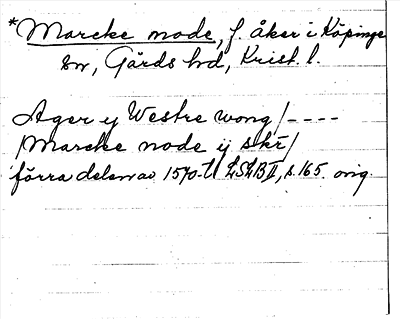 *Marcke mode, f. åker i Köpinge
sn, Gärds hd, Krist. l.
Ager y Westre wong /----
/Marcke mode ij skr/
förra delen av 1570-t. LSLB II, s. 165. orig.